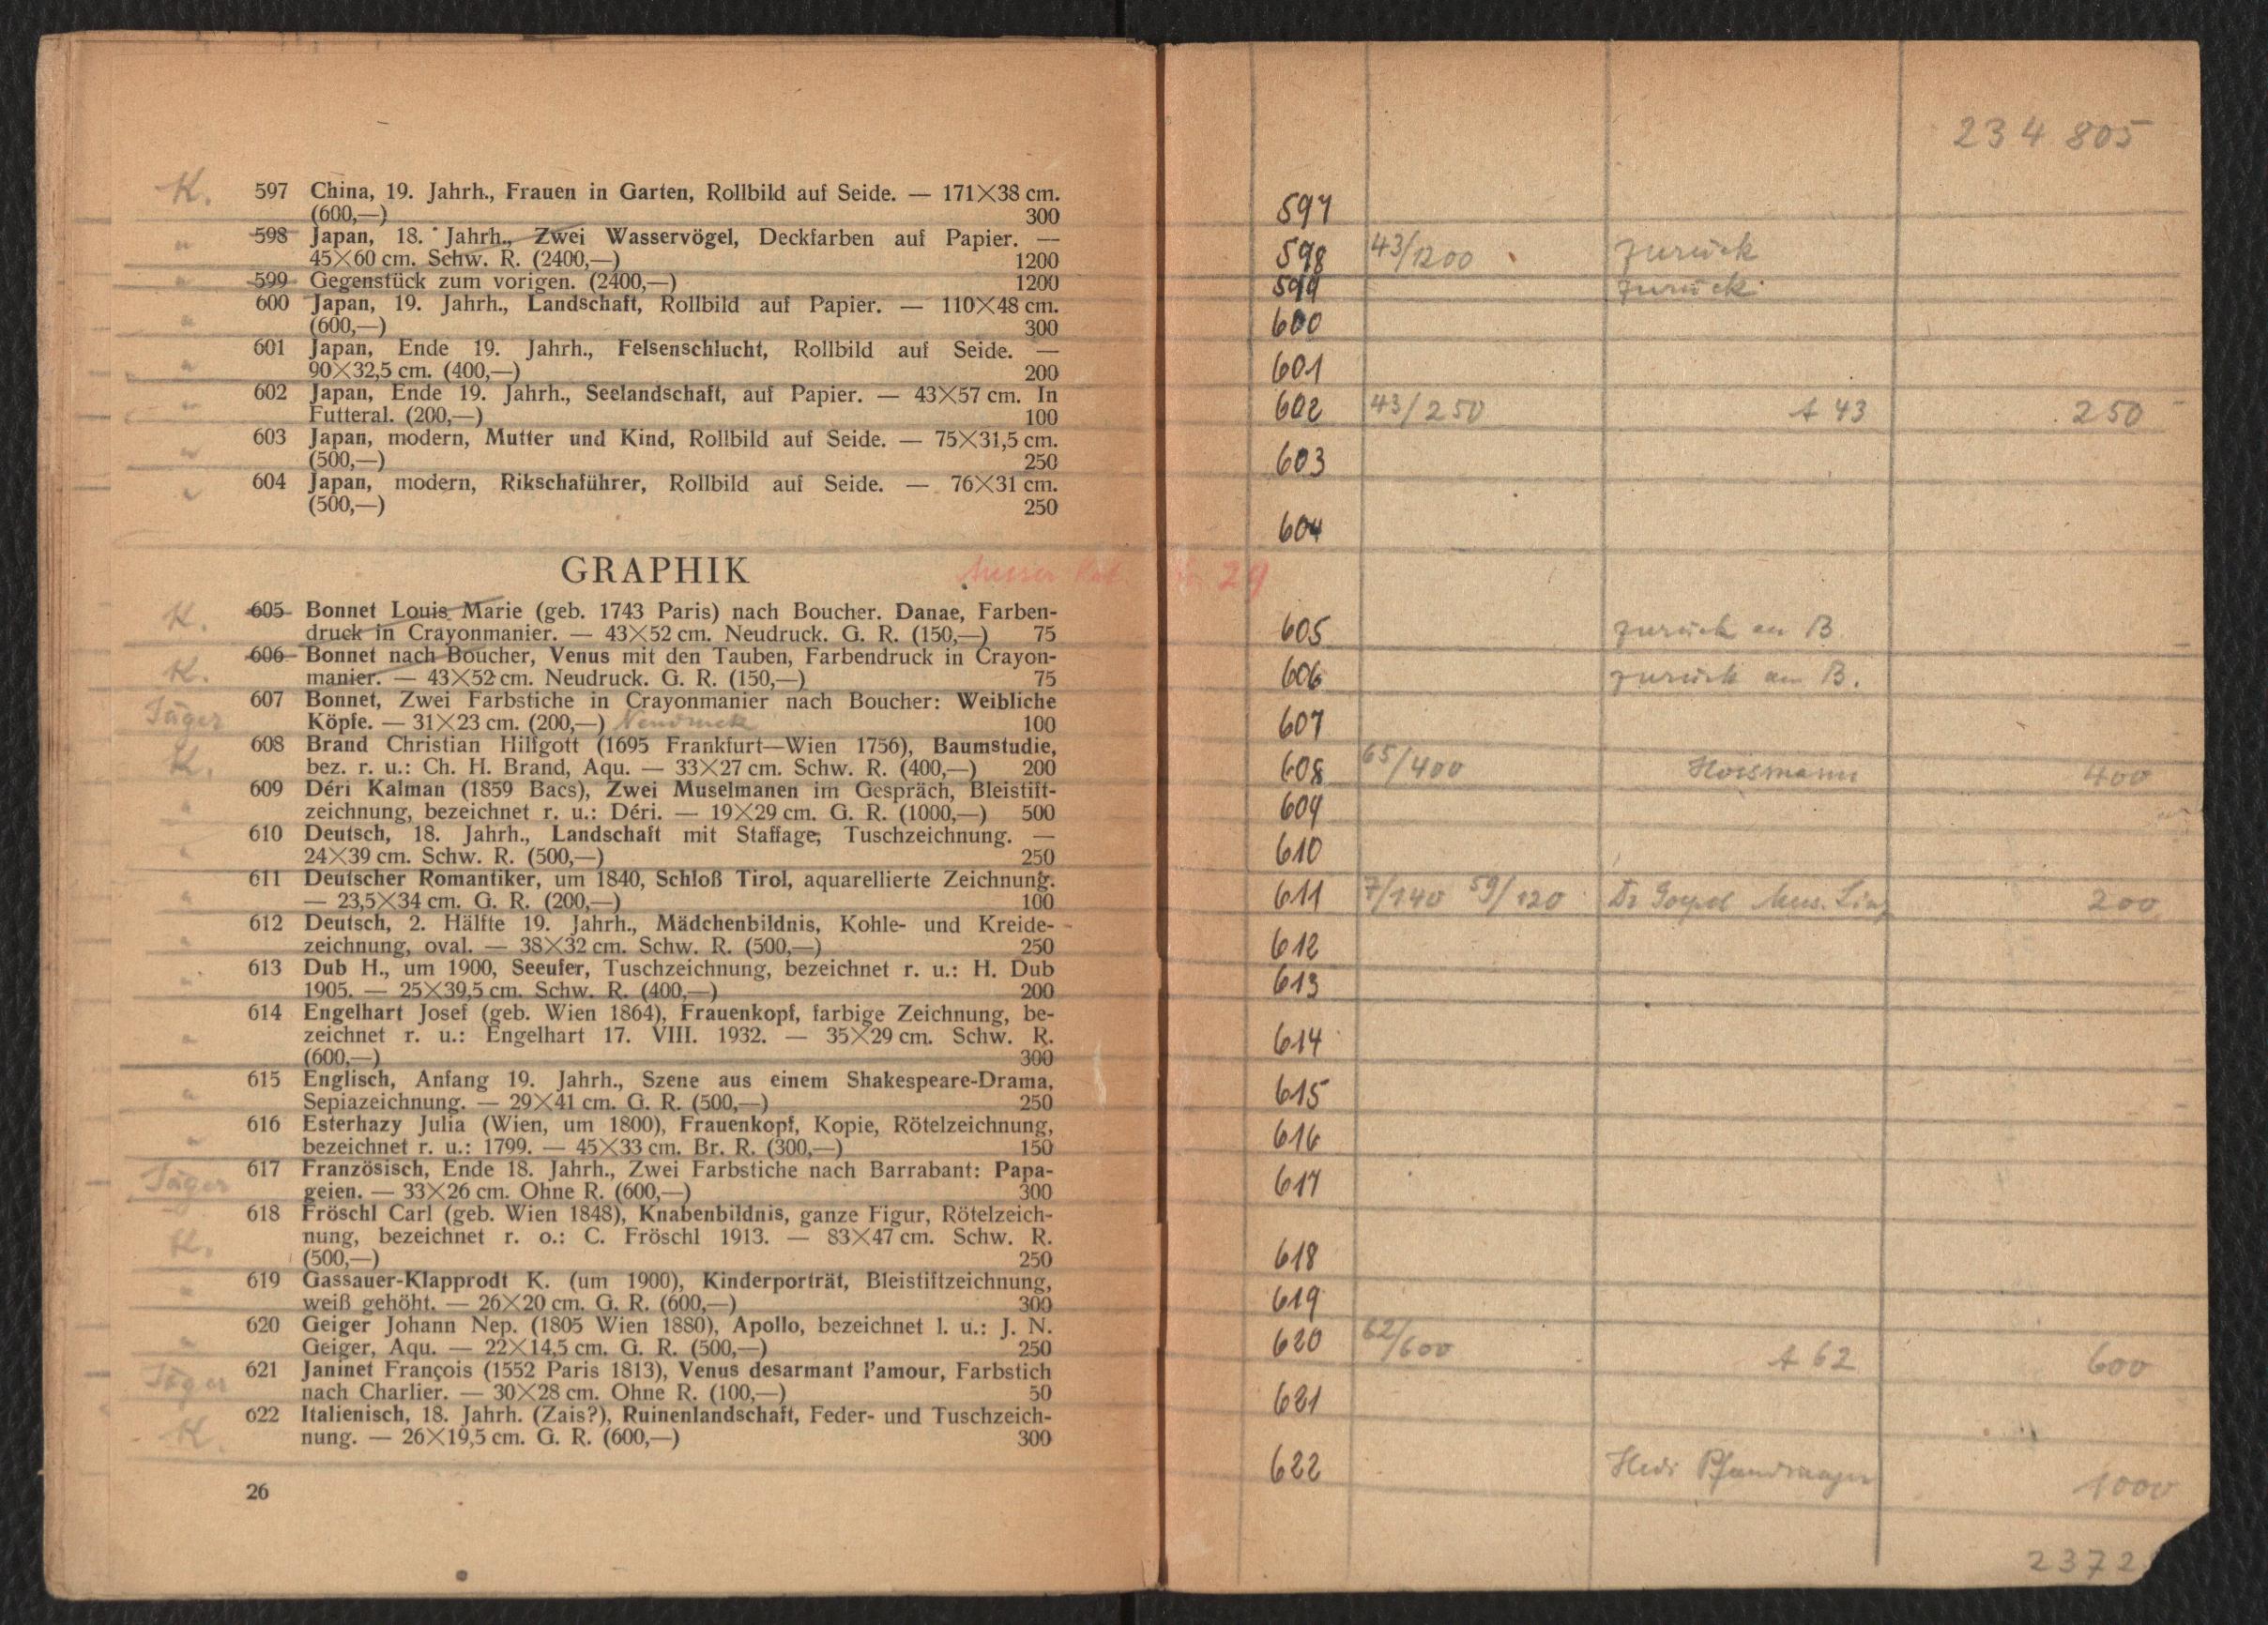 K. 597 China, 19. Jahrh., Frauen in Garten, Rollbild auf Seide. — 171×38 cm.
(600,—) 300
598 Japan, 18. Jahrh., Zwei Wasservögel, Deckfarben auf Papier. —
45×60 cm. Schw. R. (2400,—) 1200
599 Gegenstück zum vorigen. (2400,—) 1200
600 Japan, 19. Jahrh., Landschaft, Rollbild auf Papier. — 110×48 cm.
(600,—) 300
601 Japan, Ende 19. Jahrh., Felsenschlucht, Rollbild auf Seide. —
90×32,5 cm. (400,—) 200
602 Japan, Ende 19. Jahrh., Seelandschaft, auf Papier. — 43×57 cm. In
Futteral. (200,—) 100
603 Japan, modern, Mutter und Kind, Rollbild auf Seide. — 75×31,5 cm.
(500,—) 250
604 Japan, modern, Rikschaführer, Rollbild auf Seide. — 76×31 cm.
(500,—) 250
GRAPHIK
K. 605 Bonnet Louis Marie (geb. 1743 Paris) nach Boucher. Danae, Farben-
druck in Crayonmanier. — 43×52 cm. Neudruck. G. R. (150,—) 75
K. 606 Bonnet nach Boucher, Venus mit den Tauben, Farbendruck in Crayon-
manier. — 43×52 cm. Neudruck. G. R. (150,—) 75
Jäger 607 Bonnet, Zwei Farbstiche in Crayonmanier nach Boucher: Weibliche
Köpfe. — 31×23 cm. (200,—) Neudruck 100
K. 608 Brand Christian Hilfgott (1695 Frankfurt—Wien 1756), Baumstudie,
bez. r. u.: Ch. H. Brand, Aqu. — 33×27 cm. Schw. R. (400,—) 200
609 Déri Kalman (1859 Bacs), Zwei Muselmanen im Gespräch, Bleistift-
zeichnung, bezeichnet r. u.: Déri. — 19×29 cm. G. R. (1000,—) 500
610 Deutsch, 18. Jahrh., Landschaft mit Staffage, Tuschzeichnung. —
24×39 cm. Schw. R. (500,—) 250
611 Deutscher Romantiker, um 1840, Schloß Tirol, aquarellierte Zeichnung.
— 23,5×34 cm. G. R. (200,—) 100
612 Deutsch, 2. Hälfte 19. Jahrh., Mädchenbildnis, Kohle- und Kreide-
zeichnung, oval. — 38×32 cm. Schw. R. (500,—) 250
613 Dub H., um 1900, Seeufer, Tuschzeichnung, bezeichnet r. u.: H. Dub
1905. — 25×39,5 cm. Schw. R. (400,—) 200
614 Engelhart Josef (geb. Wien 1864), Frauenkopf, farbige Zeichnung, be-
zeichnet r. u.: Engelhart 17. VIII. 1932. — 35×29 cm. Schw. R.
(600,—) 300
615 Englisch, Anfang 19. Jahrh., Szene aus einem Shakespeare-Drama,
Sepiazeichnung. — 29×41 cm. G. R. (500,—) 250
616 Esterhazy Julia (Wien, um 1800), Frauenkopf, Kopie, Rötelzeichnung,
bezeichnet r. u.: 1799. — 45×33 cm. Br. R. (300,—) 150
Jäger 617 Französisch, Ende 18. Jahrh., Zwei Farbstiche nach Barrabant: Papa-
geien. — 33×26 cm. Ohne R. (600,—) 300
618 Fröschl Carl (geb. Wien 1848), Knabenbildnis, ganze Figur, Rötelzeich-
K. nung, bezeichnet r. o.: C. Fröschl 1913. — 83×47 cm. Schw. R.
(500,—) 250
619 Gassauer-Klapprodt K. (um 1900), Kinderporträt, Bleistiftzeichnung,
weiß gehöht. — 26×20 cm. G. R. (600,—) 300
620 Geiger Johann Nep. (1805 Wien 1880), Apollo, bezeichnet l. u.: J. N.
Geiger, Aqu. — 22×14,5 cm. G. R. (500,—) 250
Jäger 621 Janinet François (1552 Paris 1813), Venus desarmant l'amour, Farbstich
nach Charlier. — 30×28 cm. Ohne R. (100,—) 50
622 Italienisch, 18. Jahrh. (Zais?), Ruinenlandschaft, Feder- und Tuschzeich-
K. nung. — 26×19,5 cm. G. R. (600,—) 300
26
234 805
597
598 43/1200 zurück
599 zurück
600
601
602 43/250 A 43 250
603
604
29
605 zurück an B.
606 zurück an B.
607
608 65/400 400
609
610
611 7/140 59/120 Dr Goepel Mus. Linz 200
612
613
614
615
616
617
618
619
620 62/600 A 62 600
621
622 Hedi 1000
2372